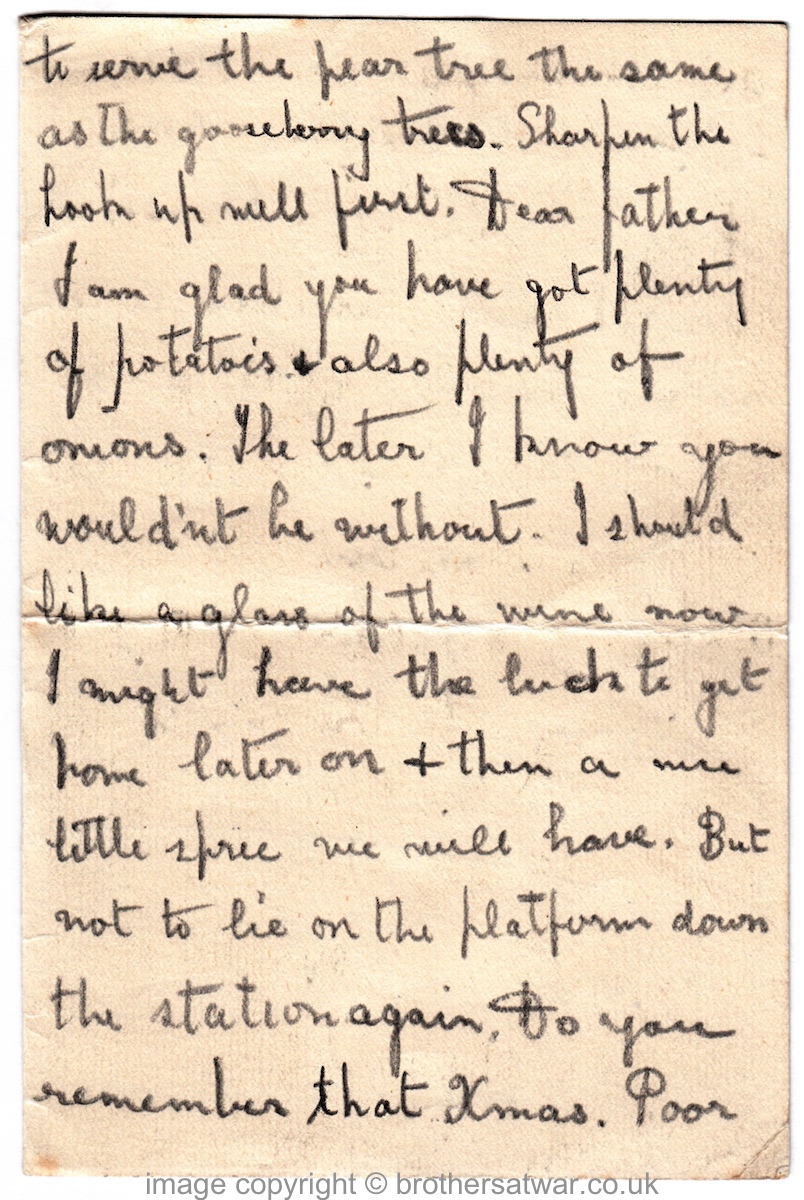 to serve the pear tree the same
as the gooseberry trees. Sharpen the
hook up well first. Dear father
I am glad you have got plenty
of potatois & also plenty of
onions. The later I know you
would'nt be without. I should
like a glass of the wine now
I might have the luck to get
home later on + then a nice
little spree we will have. But
not to lie on the platform down
the station again. Do you
remember that Xmas. Poor
image copyright © brothersatwar.co.uk